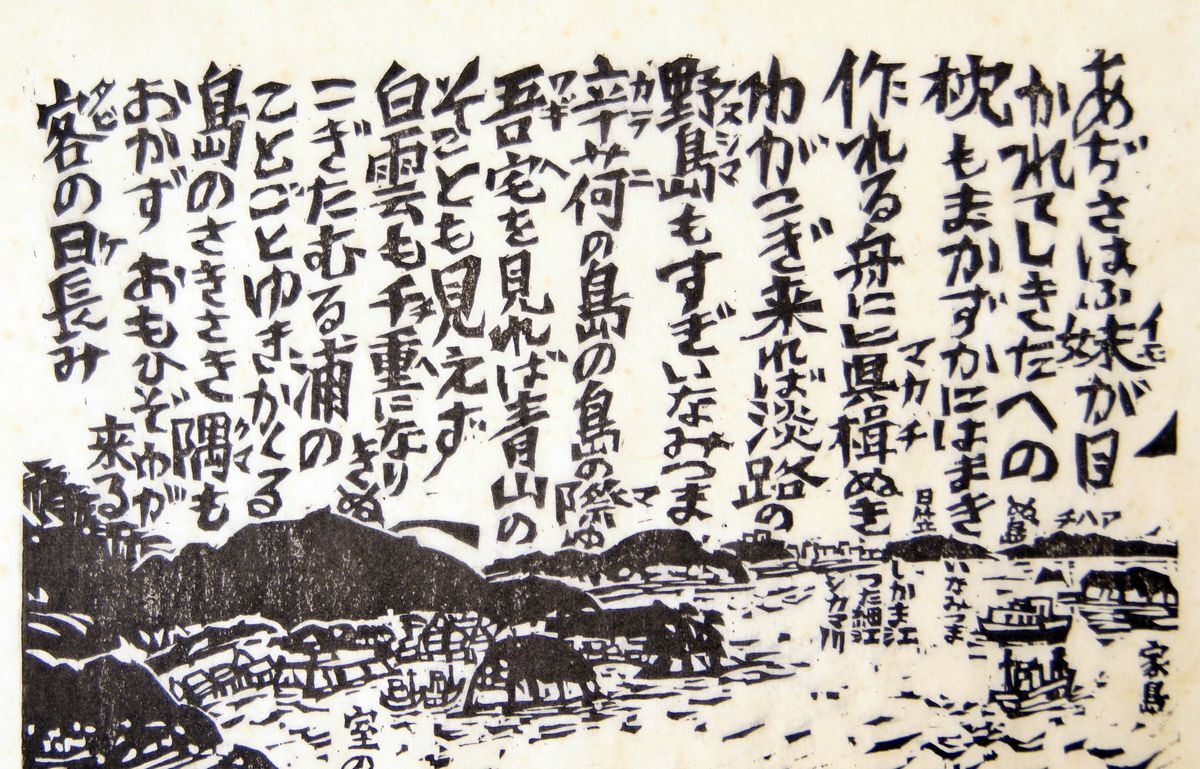 あぢさはふ妹が目
イモ
かれてしきたへの
枕もまかずかにはまき
作れる舟に眞楫ぬき
マカチ
わがこぎ来れば淡路の
野島もすぎいなみつま
ヌシマ
辛荷の島の島の際ゆ
カラニ
マ
吾宅を見れば青山の
ワギヘ
そことも見えず
白雲も千重になり
チヘ
きぬ
こぎたむる浦の
ことごとゆきかくる
島のさきさき隅も
クマ
おかず おもひぞわが
来る
客の日長み
タビ
ケ
アハチ
ぬ島
いなみつま
しかま江
つた細江
シカマ川
家島
室の